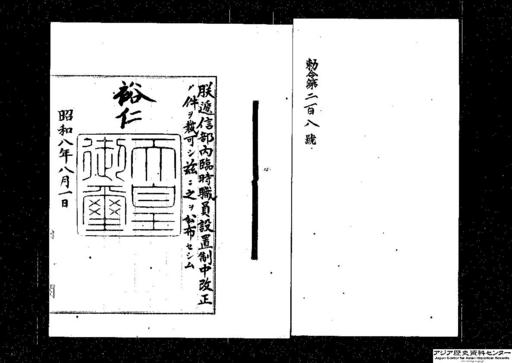 勅令第二百八號
朕遞信部內臨時職員設置制中改正
ノ件ヲ裁可シ茲ニ之ヲ公布セシム
裕仁
天皇御璽
昭和八年八月一日
アジア歴史資料センター
Japan Center for Asian Historical Records